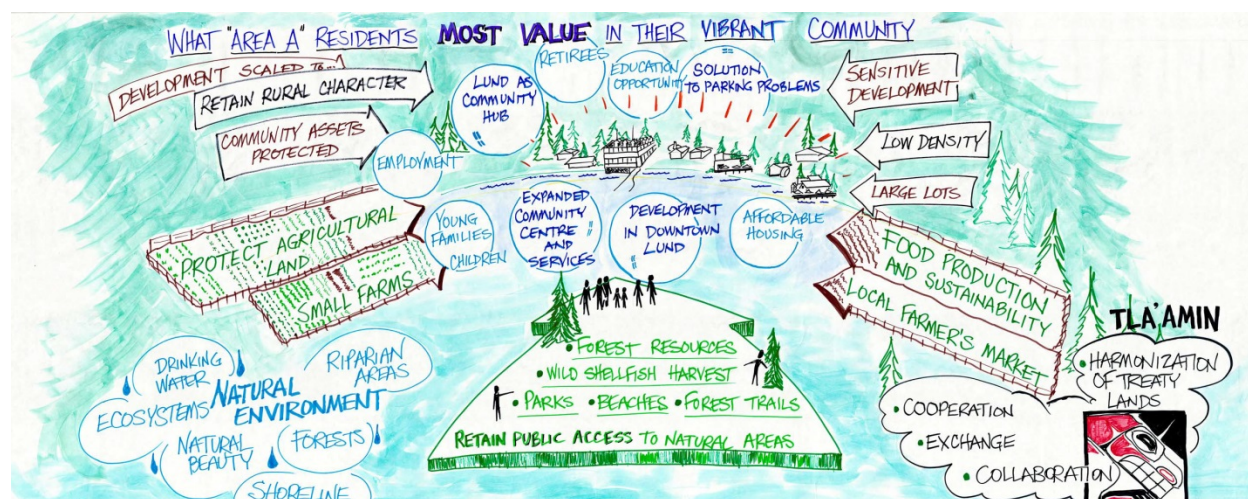 WHAT "AREA A" RESIDENTS MOST VALUE IN THEIR VIBRANT COMMUNITY
DEVELOPMENT SCALED TO...
RETAIN RURAL CHARACTER
COMMUNITY ASSETS
PROTECTED
EMPLOYMENT
LUND AS
COMMUNITY
HUB
RETIREES
EDUCATION
OPPORTUNITY
SOLUTION
TO PARKING PROBLEMS
SENSITIVE
DEVELOPMENT
LOW DENSITY
LARGE LOTS
PROTECT AGRICULTURAL
LAND
SMALL FARMS
YOUNG
FAMILIES
CHILDREN
EXPANDED
COMMUNITY
CENTRE
AND
SERVICES
DEVELOPMENT
IN DOWNTOWN
LUND
AFFORDABLE
HOUSING
FOOD PRODUCTION
AND SUSTAINABILITY
LOCAL FARMER'S
MARKET
DRINKING
WATER
RIPARIAN
AREAS
ECOSYSTEMS
NATURAL
ENVIRONMENT
NATURAL
BEAUTY
FORESTS
SHORELINE
• FOREST RESOURCES
• WILD SHELLFISH HARVEST
• PARKS • BEACHES • FOREST TRAILS
RETAIN PUBLIC ACCESS TO NATURAL AREAS
TLA'AMIN
• HARMONIZATION
OF TREATY
LANDS
• COOPERATION
• EXCHANGE
• COLLABORATION